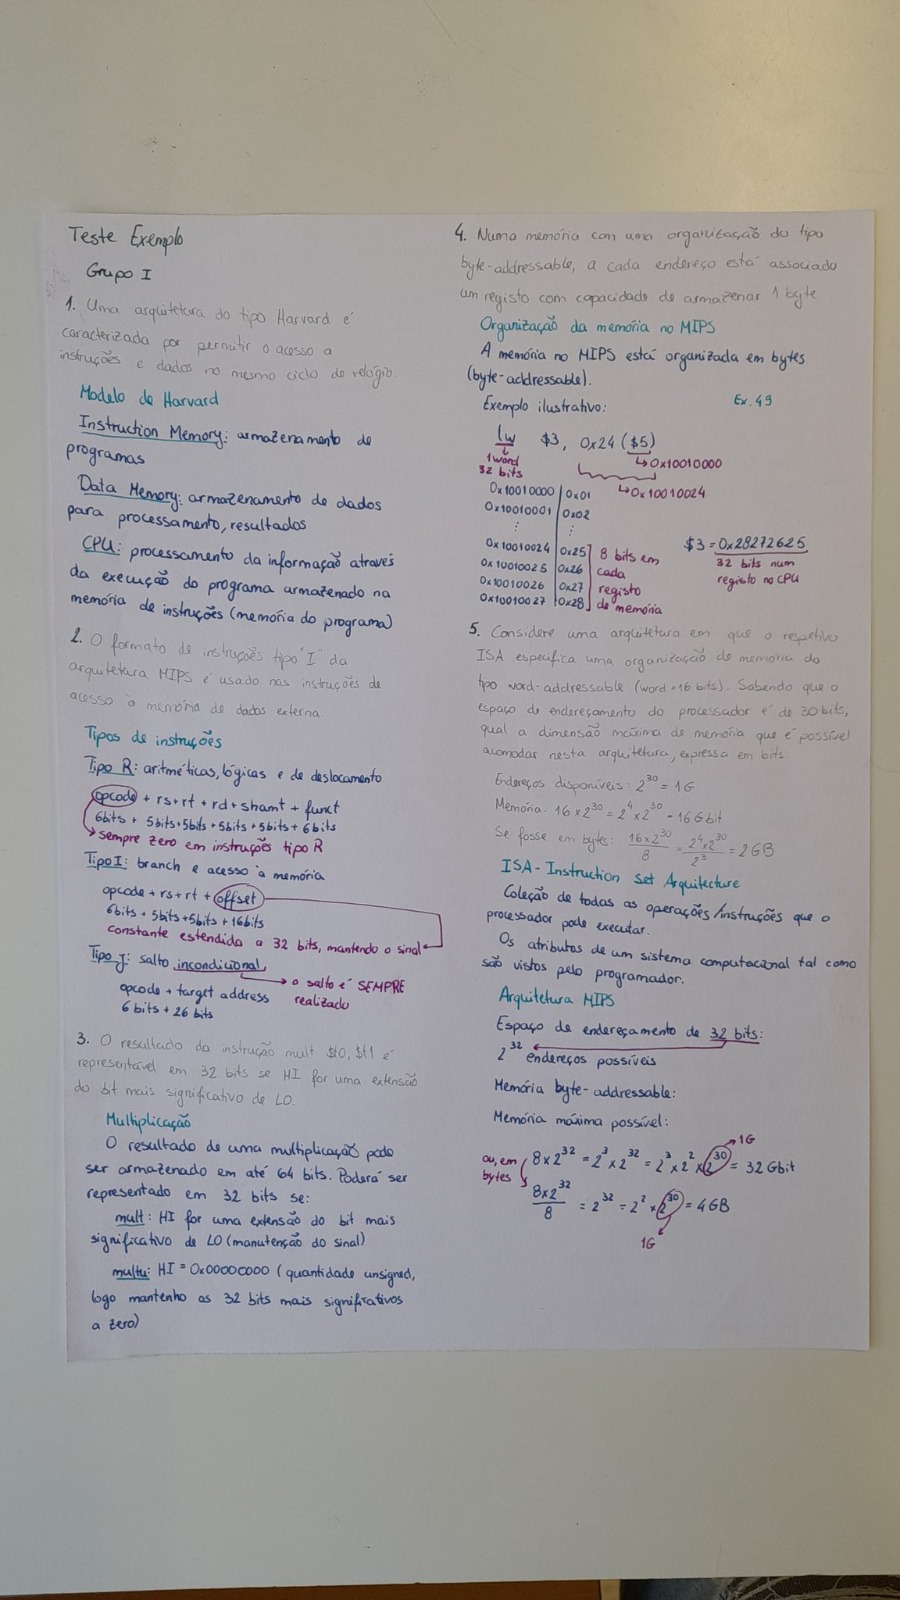 Teste Exemplo
Grupo I
1. Uma arquitetura do tipo Harvard é
caracterizada por permitir o acesso a
instruções e dados no mesmo ciclo de relógio.
Modelo de Harvard
Instruction Memory: armazenamento de
programas
Data Memory: armazenamento de dados
para processamento, resultados
CPU: processamento da informação através
da execução do programa armazenado na
memória de instruções (memória do programa)
2. O formato de instruções tipo "I" da
arquitetura MIPS é usado nas instruções de
acesso à memória de dados externa.
Tipos de instruções
Tipo R: aritméticas, lógicas e de deslocamento
opcode + rs+rt + rd+shamt + funct
6bits + 5bits+5bits+5bits+5bits+6bits
sempre zero em instruções tipo R
Tipo I: branch e acesso à memória
opcode + rs+rt + offset
6bits + 5bits+5bits+16bits
constante estendida a 32 bits, mantendo o sinal
Tipo J: salto incondicional
o salto é SEMPRE
realizado
opcode + target address
6 bits + 26 bits
3. O resultado da instrução mult $t0, $t1 é
representável em 32 bits se HI for uma extensão
do bit mais significativo de LO.
Multiplicação
O resultado de uma multiplicação pode
ser armazenado em até 64 bits. Poderá ser
representado em 32 bits se:
mult: HI for uma extensão do bit mais
significativo de LO (manutenção do sinal)
multu: HI = 0x00000000 (quantidade unsigned,
logo mantenho os 32 bits mais significativos
a zero)
4. Numa memória com uma organização do tipo
byte-addressable, a cada endereço está associado
um registo com capacidade de armazenar 1 byte
Organização da memória no MIPS
A memória no MIPS está organizada em bytes
(byte-addressable).
Exemplo ilustrativo:
Ex. 49
lw $3, 0x24 ($5)
1 word
32 bits
0x10010000
0x10010024
0x10010000 0x01
0x10010001 0x02
⋮ ⋮
0x10010024 0x25
0x10010025 0x26
0x10010026 0x27
0x10010027 0x28
8 bits em
cada
registo
de memória
$3 = 0x28272625
32 bits num
registo no CPU
5. Considere uma arquitetura em que o respetivo
ISA especifica uma organização de memória do
tipo word-addressable (word=16 bits). Sabendo que o
espaço de endereçamento do processador é de 30 bits,
qual a dimensão máxima de memória que é possível
acomodar nesta arquitetura, expressa em bits:
Endereços disponíveis: 2³⁰ = 1G
Memória: 16 × 2³⁰ = 2⁴ × 2³⁰ = 16 Gbit
Se fosse em bytes: 16×2³⁰/8 = 2⁴×2³⁰/2³ = 2GB
ISA - Instruction Set Arquitecture
Coleção de todas as operações/instruções que o
processador pode executar.
Os atributos de um sistema computacional tal como
são vistos pelo programador.
Arquitetura MIPS
Espaço de endereçamento de 32 bits:
2³² endereços possíveis
Memória byte-addressable:
Memória máxima possível:
1G
8×2³² = 2³ × 2³² = 2³ × 2² × 2³⁰ = 32 Gbit
ou, em
bytes
8×2³²/8 = 2³² = 2² × 2³⁰ = 4GB
1G